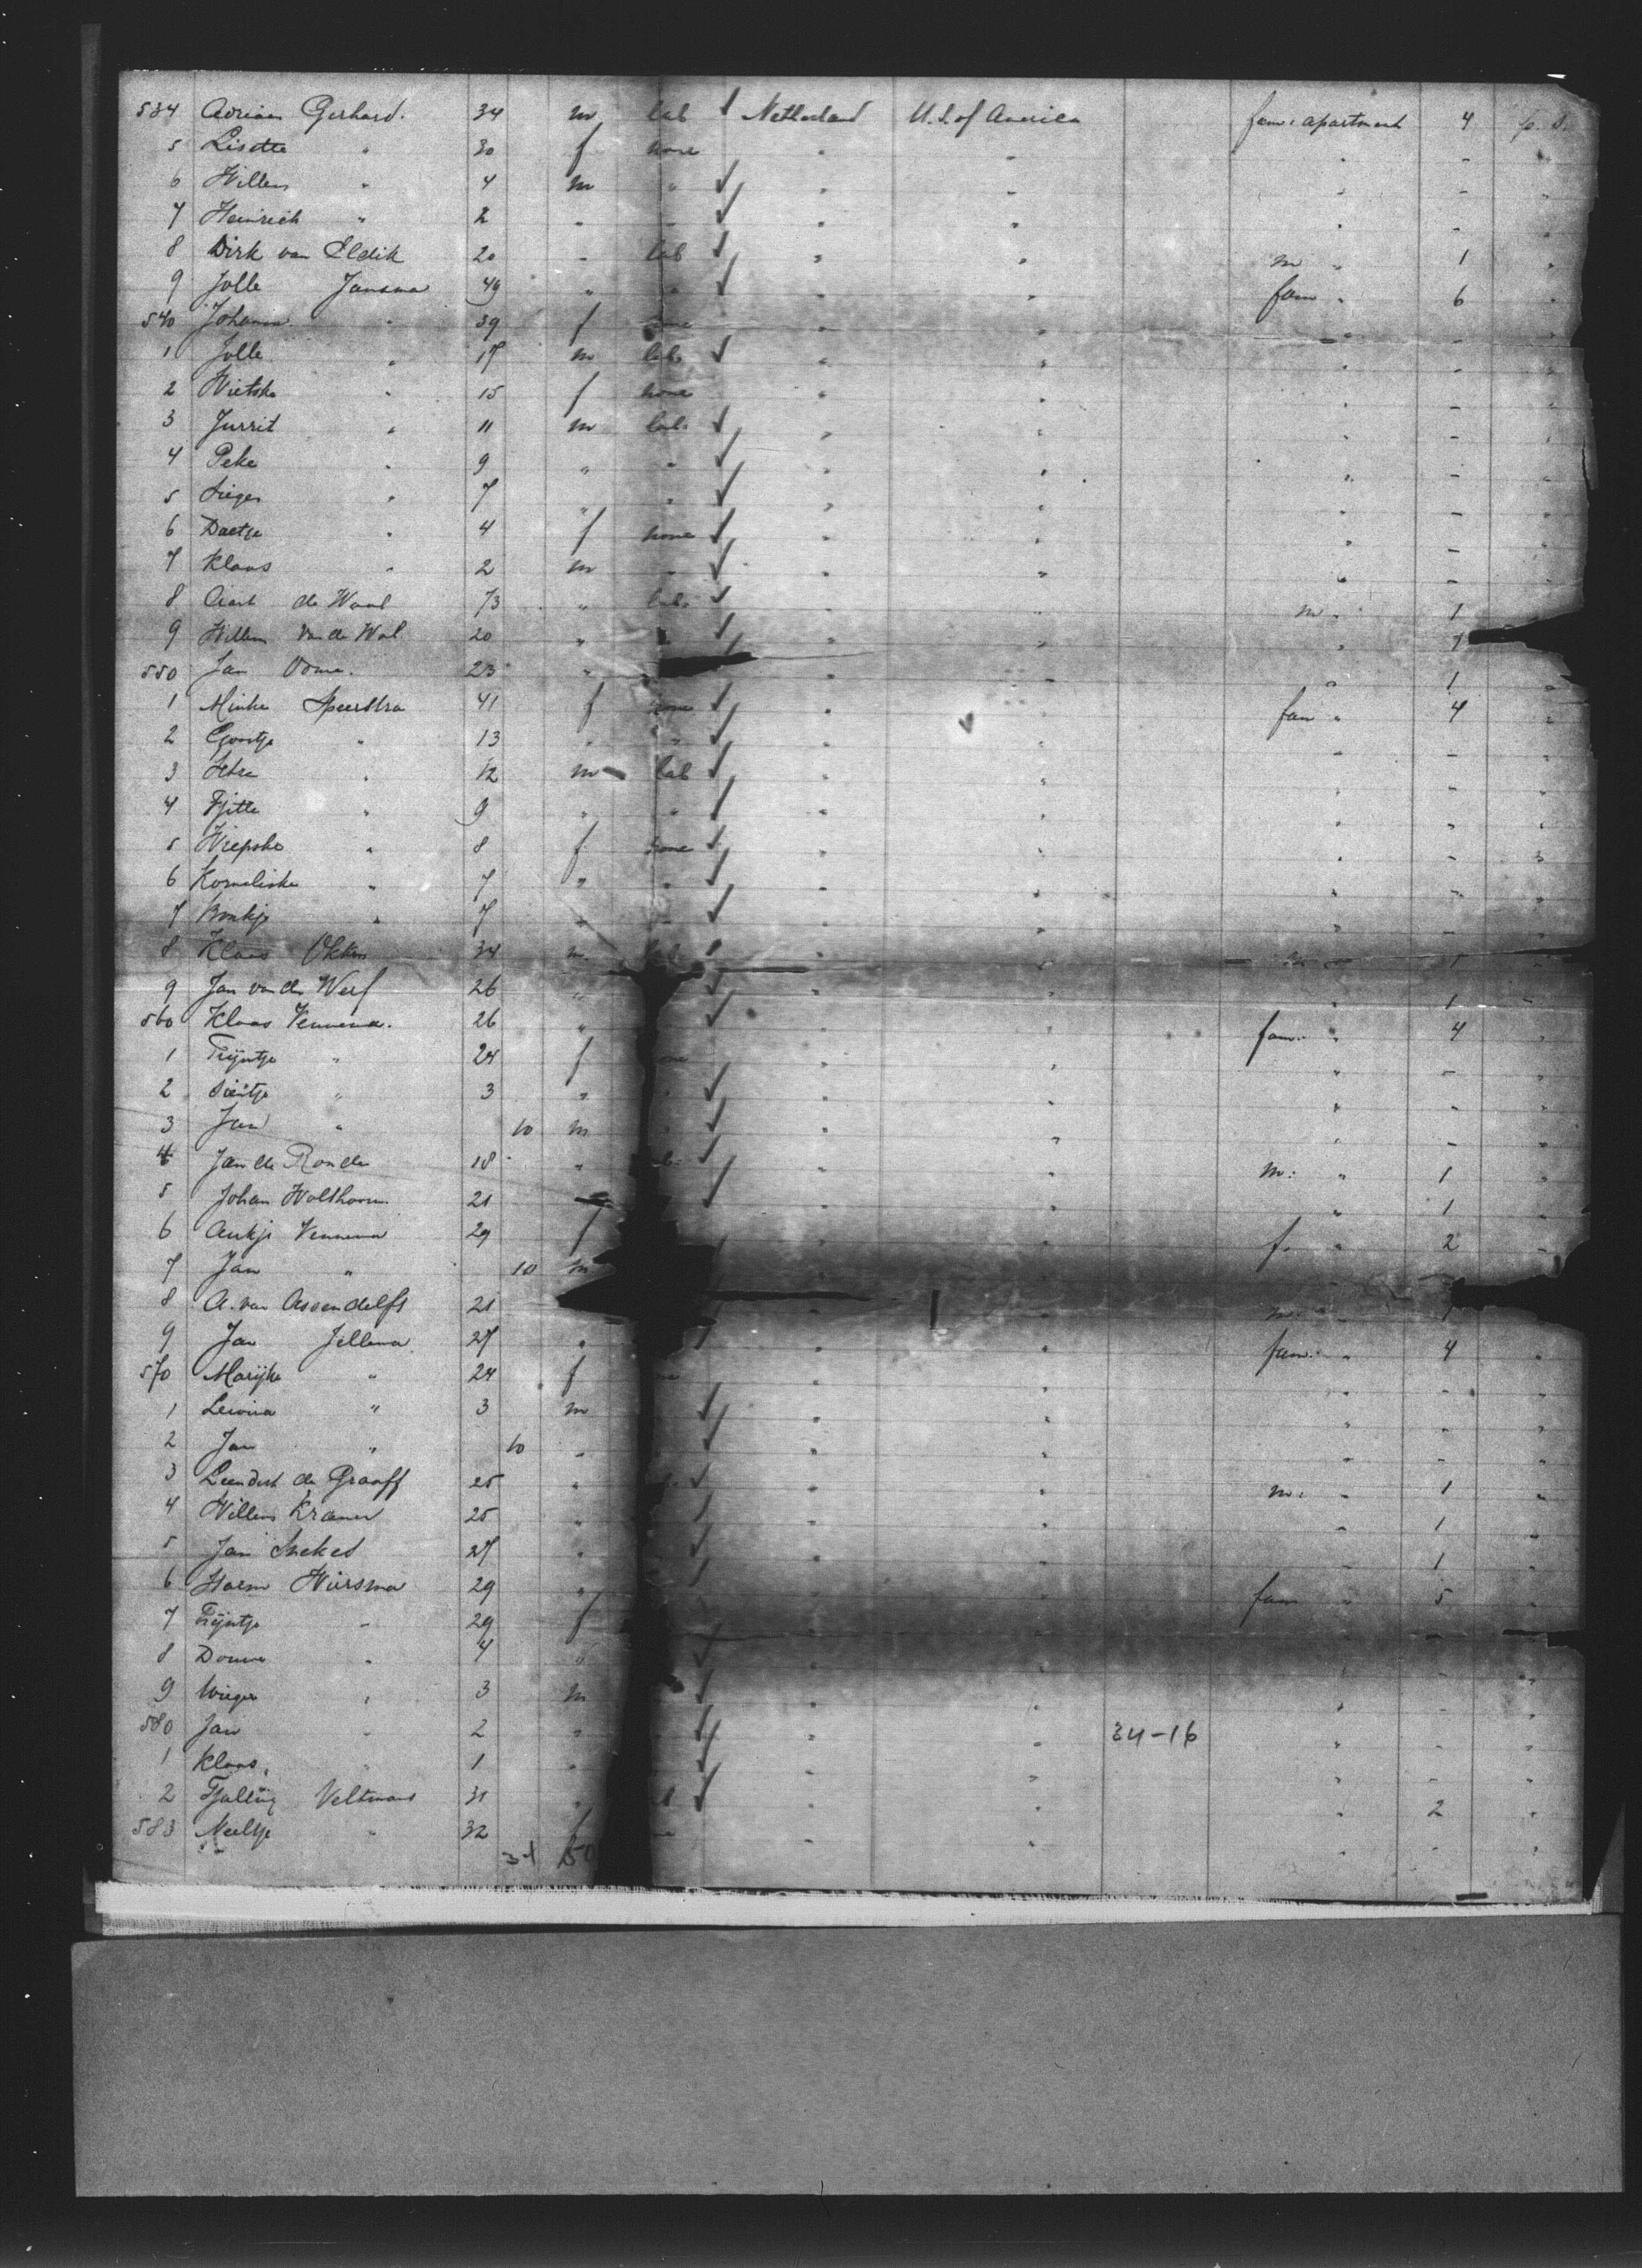 534 Adriaan Gerhard. 34 m lab Netherland U.S. of America fam: apartment 4
5 Lisette " 30 f none " " " -
6 Willem " 4 m " " " " -
7 Heinrich " 2 " " " " " -
8 Dirk van Eldik 20 " lab " " m " 1 "
9 Jolle Jansma 49 " " " " fam " 6 "
540 Johanna " 39 f none " " " - "
1 Jolle " 17 m lab. " " " - "
2 Wietske " 15 f none " " " - "
3 Jurrit " 11 m lab. " " " - "
4 Peke " 9 " " " " " - "
5 Sieger " 7 " " " " " - "
6 Daetje " 4 f none " " " - "
7 Klaas " 2 m " " " " - "
8 Aart de Waal 73 " lab. " " m. 1
9 Willem van de Wal 20 " " " " 1
550 Jan 23 " " " " 1 "
1 Minke Speerstra 41 f none " " fam " 4 "
2 " 13 " " " " " - "
3 " 12 m lab " " " - "
4 Tjitte " 9 " " " " " - "
5 Wiepske " 8 f none " " " - "
6 Korneliske " 7 " " " " " - "
7 " 7 " " " " " - "
8 Klaas 34 m. lab " " m " 1 "
9 Jan van der Werf 26 " " " " 1 "
560 Klaas Vennema. 26 " " " fam. " 4 "
1 Trijntje " 24 f none " " " - "
2 Sientje " 3 " " " " " - "
3 Jan " 10 m " " " " - "
4 Jan de Ronde 18 " " " m: " 1 "
5 Johan Wolthoorn 21 " " " 1 "
6 Aukje Vennema 29 f f. " 2 "
7 Jan " 10 m
8 A. van Assendelft 21 " m. 1
9 Jan Jellema 27 " " " fam. " 4 "
570 Marijke " 24 f " " " - "
1 " 3 m " " " - "
2 Jan " 10 " " " " - "
3 Leendert de Graaff 25 " " " m. " 1 "
4 Willem Kramer 25 " " " " 1 "
5 Jan 27 " " " " 1 "
6 Harm Wiersma 29 " " " fam " 5 "
7 Trijntje " 29 f " " " - "
8 Douwe " 4 " " " " - "
9 Wieger " 3 m " " " - "
580 Jan " 2 " " " 34-16 " - "
1 Klaas " 1 " " " " - "
2 Tjalling Veltman 31 " " " " 2 "
583 Neeltje " 32 f " " " - "
34 50